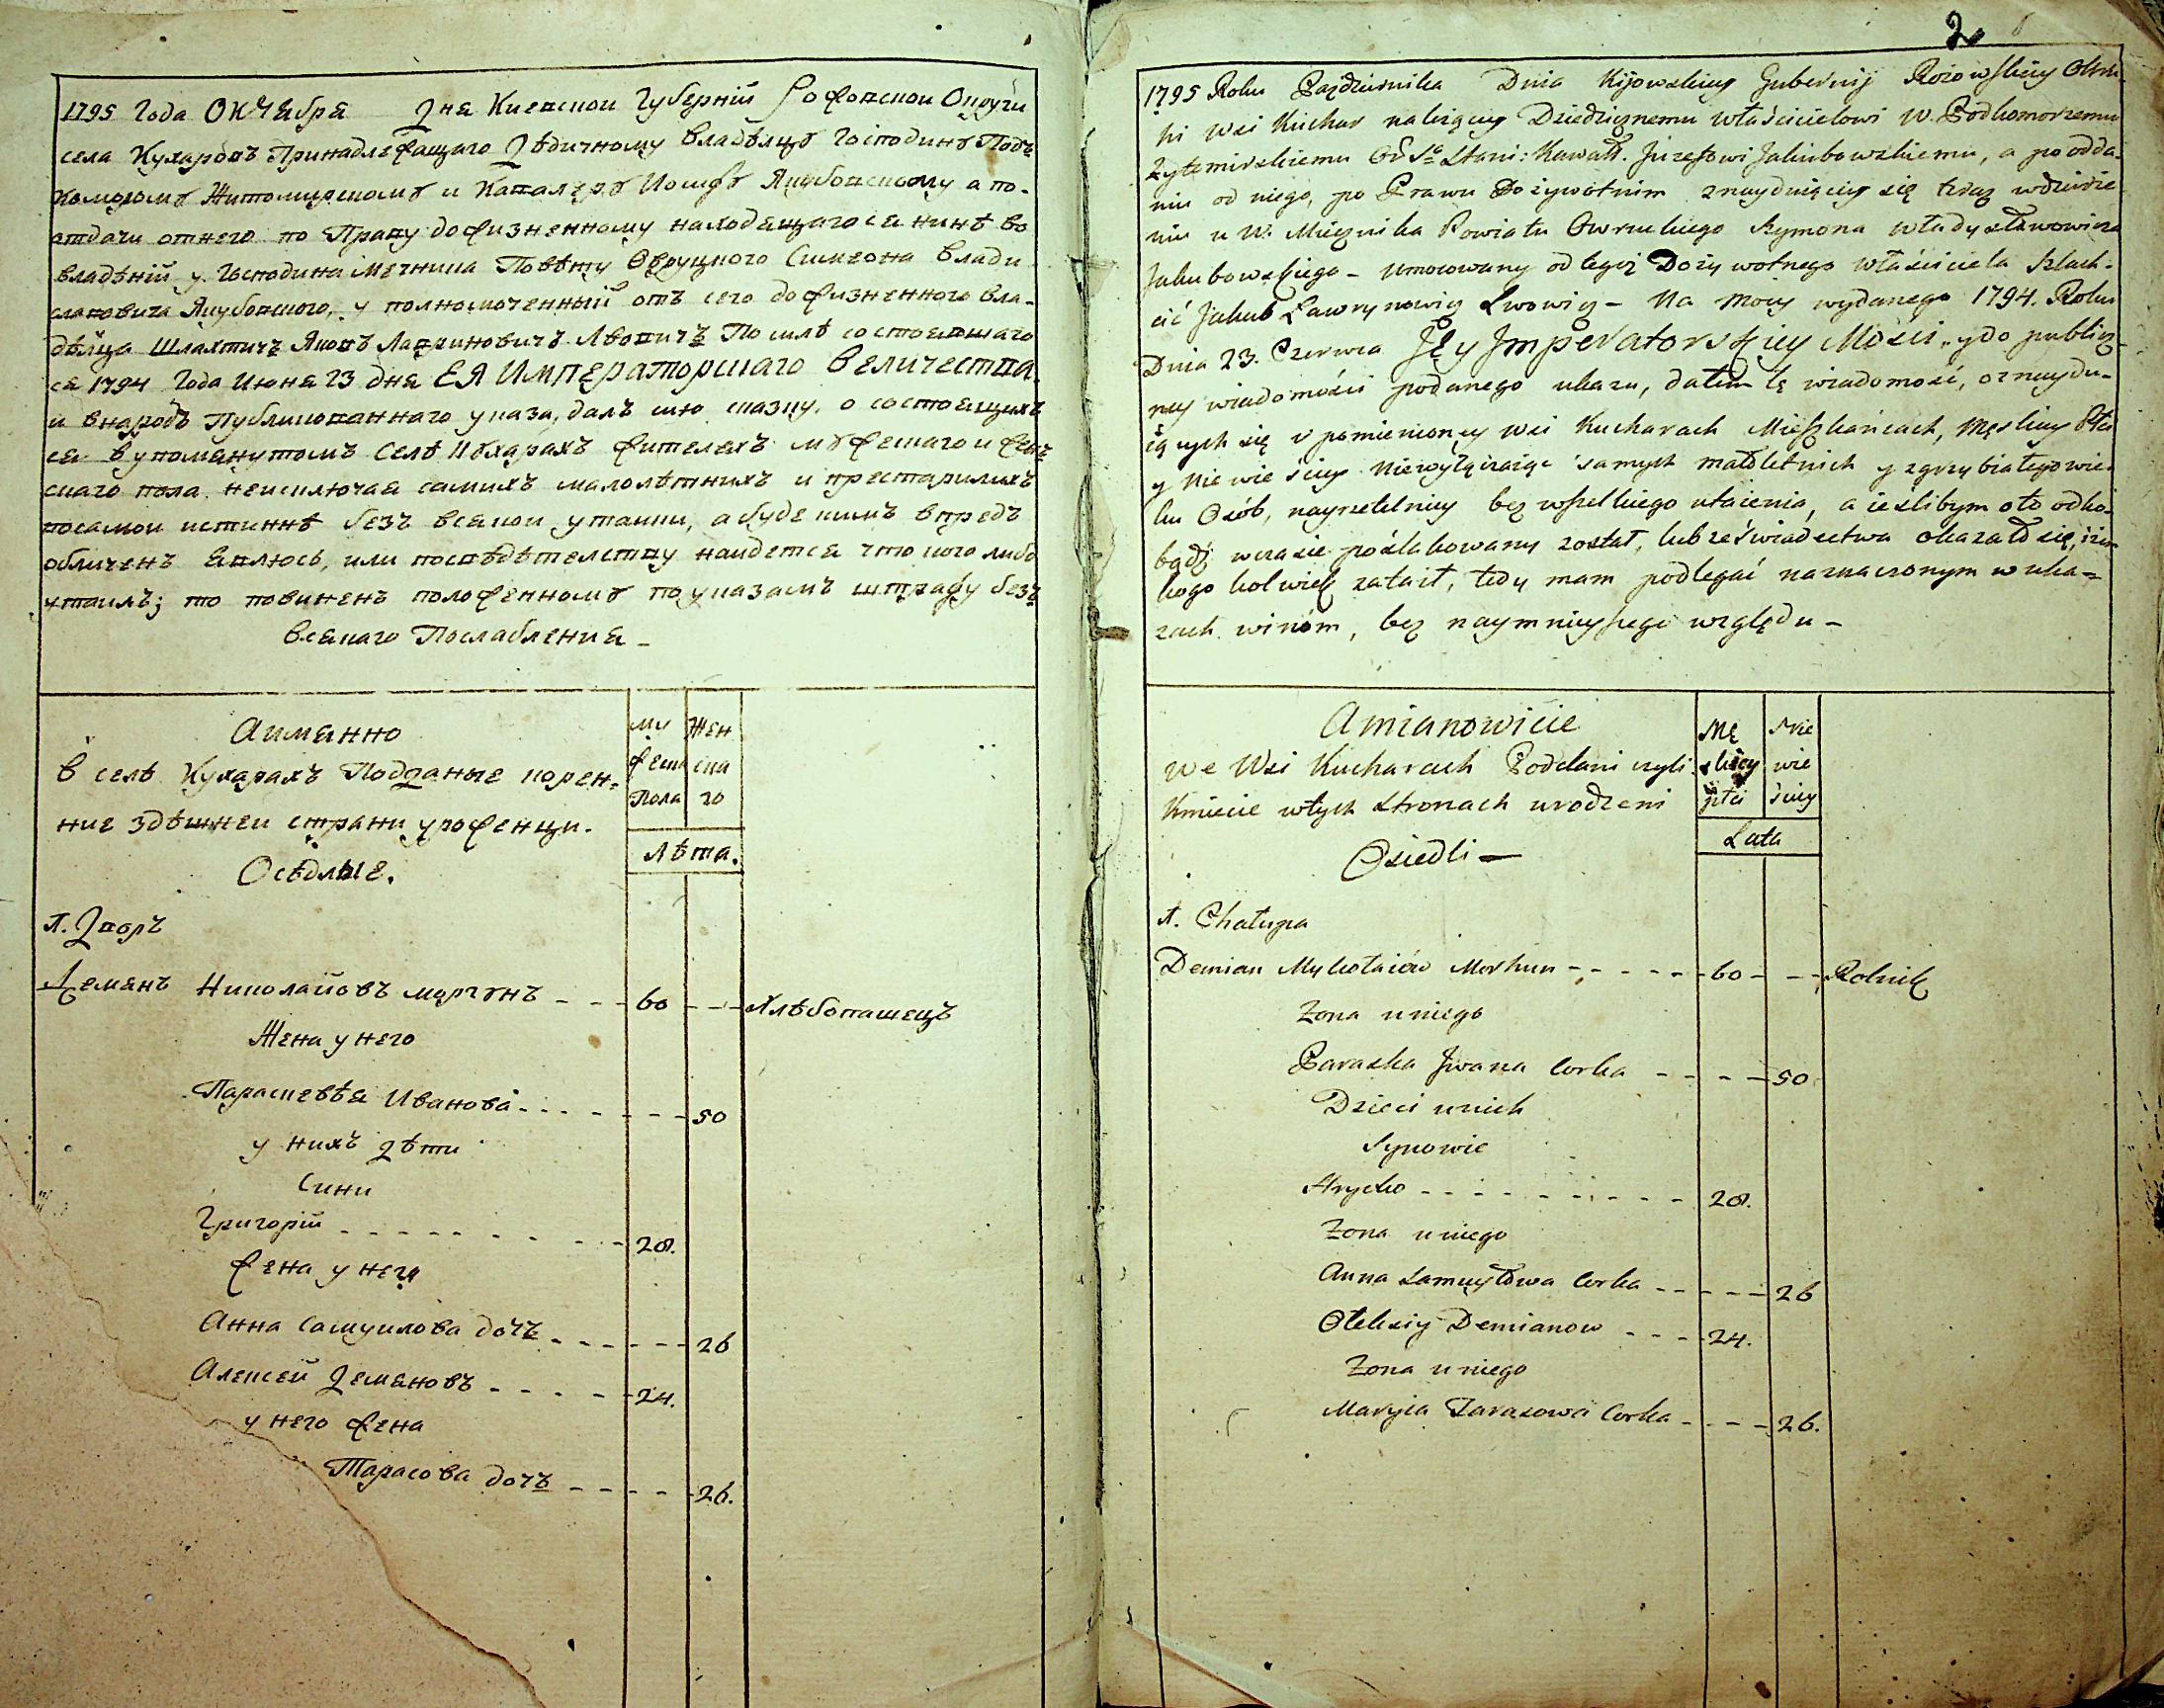 1795 Года Октября Дня Киевской Губерніи Рожовской Округи
села Кухаровъ Принадлежащаго Дѣдичному владѣлцу Господину Подъ
коморому Житомирскому и Кавалеру Иосифу Якубовскому а по-
отдачи отнего по Праву дожизненному находящагося нинѣ во
владѣній у Господина Мечника Повѣту Овруцкого Симеона Влади
славовича Якубовского, у полномоченный отъ сего дожизненного вла-
дѣлца Шляхтичъ Яковъ Лавриновичъ Лвовичъ По силѣ состоявшаго
ся 1794 Года Июня 23 дня ЕЯ Императорскаго Величества
и внародъ Публикованнаго указа, далъ сию сказку о состоящихъ
ся вупомянутомъ Селѣ Кухарахъ жителяхъ мужескаго и женъ
скаго пола неисключая самихъ малолѣтнихъ и престарилихъ
посамой истиннѣ безъ всякой утайки, а буде кимъ впредъ
обличенъ явлюсь, или посвѣдѣтелству найдется что кого либо
утаилъ; то повиненъ положенному поуказамъ штрафу безъ
всякаго Послабления -
Аимянно
В селѣ Кухарахъ Подданые корен-
ние здѣшней страни урожении.
Осѣдлые.
му
жеска
Пола
Жен
ска
го
Лѣта.
1. Дворъ
Демянъ Николайовъ моргунъ - - - 60 - - - Хлѣбопашецъ
Жена у него
Параскевѣя Иванова - - - - - - - 50
у нихъ дѣти
Сини
Григорій - - - - - - - - - 28.
жена у него
Анна самуилова дочъ - - - - - - 26
Алексей Демяновъ - - - - - 24.
у него жена
Тарасова дочъ - - - - - 26.
2
1795 Roku Pazdziernika Dnia Kijowskiey Gubernij Rożowskiey Okru-
hi wsi Kuchar należący Dziedzicznemu właścicielowi W. Podkomorzemu
Żytomirskiemu Or Sgo Stani: Kawałł. Jozefowi Jakubowskiemu, a po odda-
niu od niego, po Prawu Dożywotnim znayduiącey się teraz wdzierże
niu u W. Miecznika Powiatu Owruckiego Szymona władysławowicza
Jakubowskiego - umocowany od tegoż Dożywotnego właściciela Szlach-
cić Jakub Ławrynowicz Lwowicz - Na mocy wydanego 1794. Roku
Dnia 23. Czerwca Jey Imperatorskiey Mości, y do publicz-
ney wiadomości podanego ukazu, dałem tę wiadomość, oznaydu-
iących się w pomienioney wsi Kucharach Mieszkańcach, męskiey Płci
y niewieściey niewyłączaiąc samych małoletnich y zgrzybiałego wie-
ku Osób, nayrzetelniey bez wszelkiego utaienia, a ieślibym oto odko-
bądź wczasie poszlakowany został, lub zeświadectwa okazałosię, iżm
kogo kolwiek zataił, tedy mam podlegać naznaczonym w uka-
zach winom, bez naymnieyszego względu -
Amianowicie
we Wsi Kucharach Poddani czyli
Kmiecie wtych stronach urodzeni
Osiedli -
Mę
skiey
płci
Nie
wie
ściey
Lata
1. Chałupa
Demian Mykołaiów Morhun - - - - - 60 - - - Rolnik
Żona u niego
Paraska Jwana Corka - - - - 50
Dzieci unich
Synowie
Hryćko - - - - - - - - - 28.
Żona u niego
Anna Samuyłowa Corka - - - - - 26
Ołeksiy Demianow - - - 24.
Żona u niego
Maryia Tarasowa Corka - - - - 26.